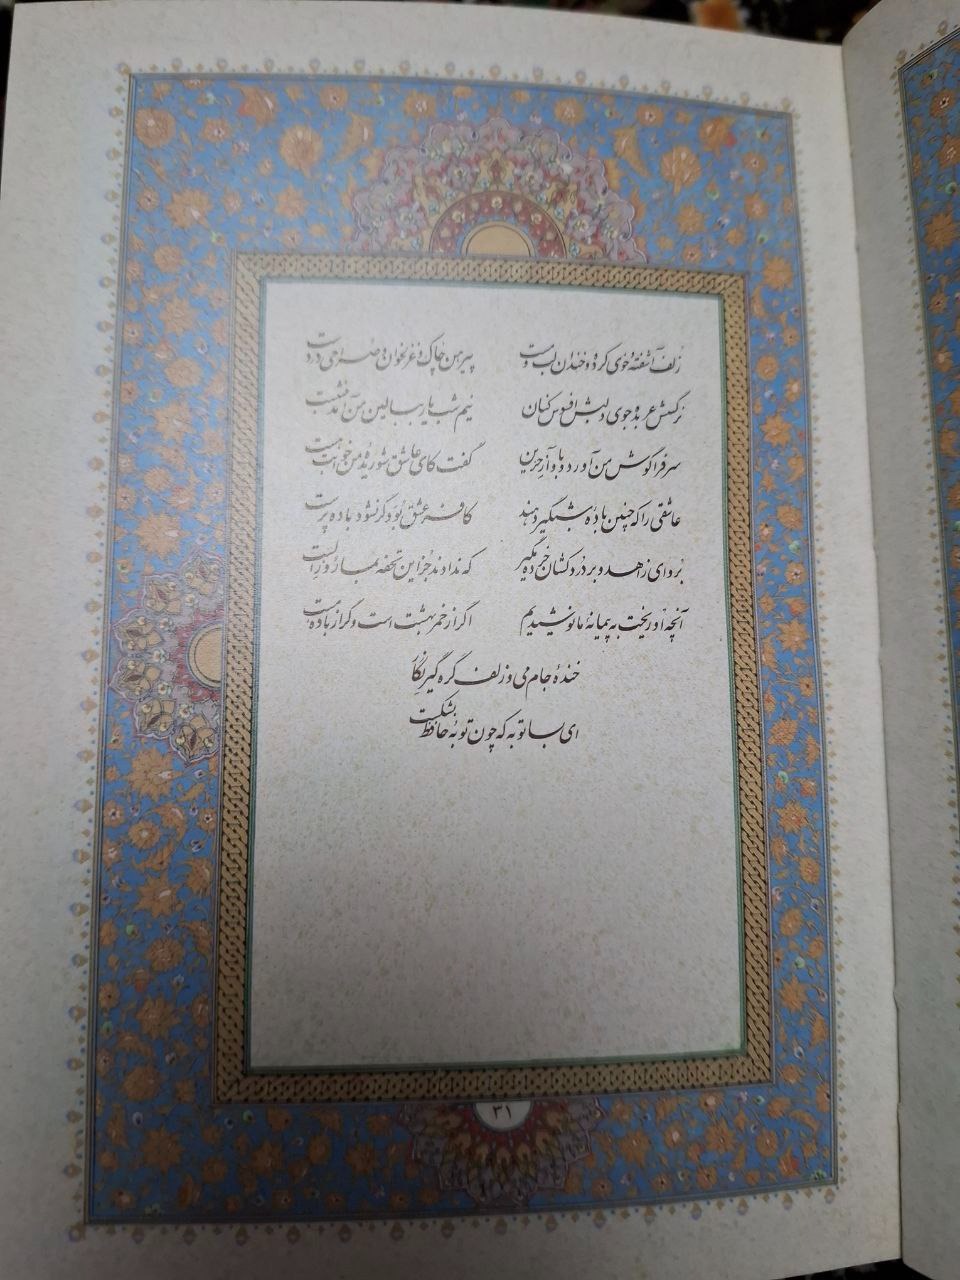 زلف آشفته و خوی کرده و خندان لب و مست پیرهن چاک و غزلخوان و صراحی در دست
نرگسش عربده جوی و لبش افسوس کنان نیم شب یار ببالین من آمد بنشست
سر فرا گوش من آورد و بآواز حزین گفت کای عاشق شوریدهٔ من خوابت هست
عاشقی را که چنین بادهٔ شبگیر دهند کافر عشق بود گر نشود باده پرست
برو ای زاهد و بر دردکشان خرده مگیر که ندادند جز این تحفه بما روز الست
آنچه او ریخت به پیمانهٔ ما نوشیدیم اگر از خمر بهشت است و گر از باده مست
خندهٔ جام می و زلف گره گیر نگار
ای بسا توبه که چون توبهٔ حافظ بشکست
۳۱